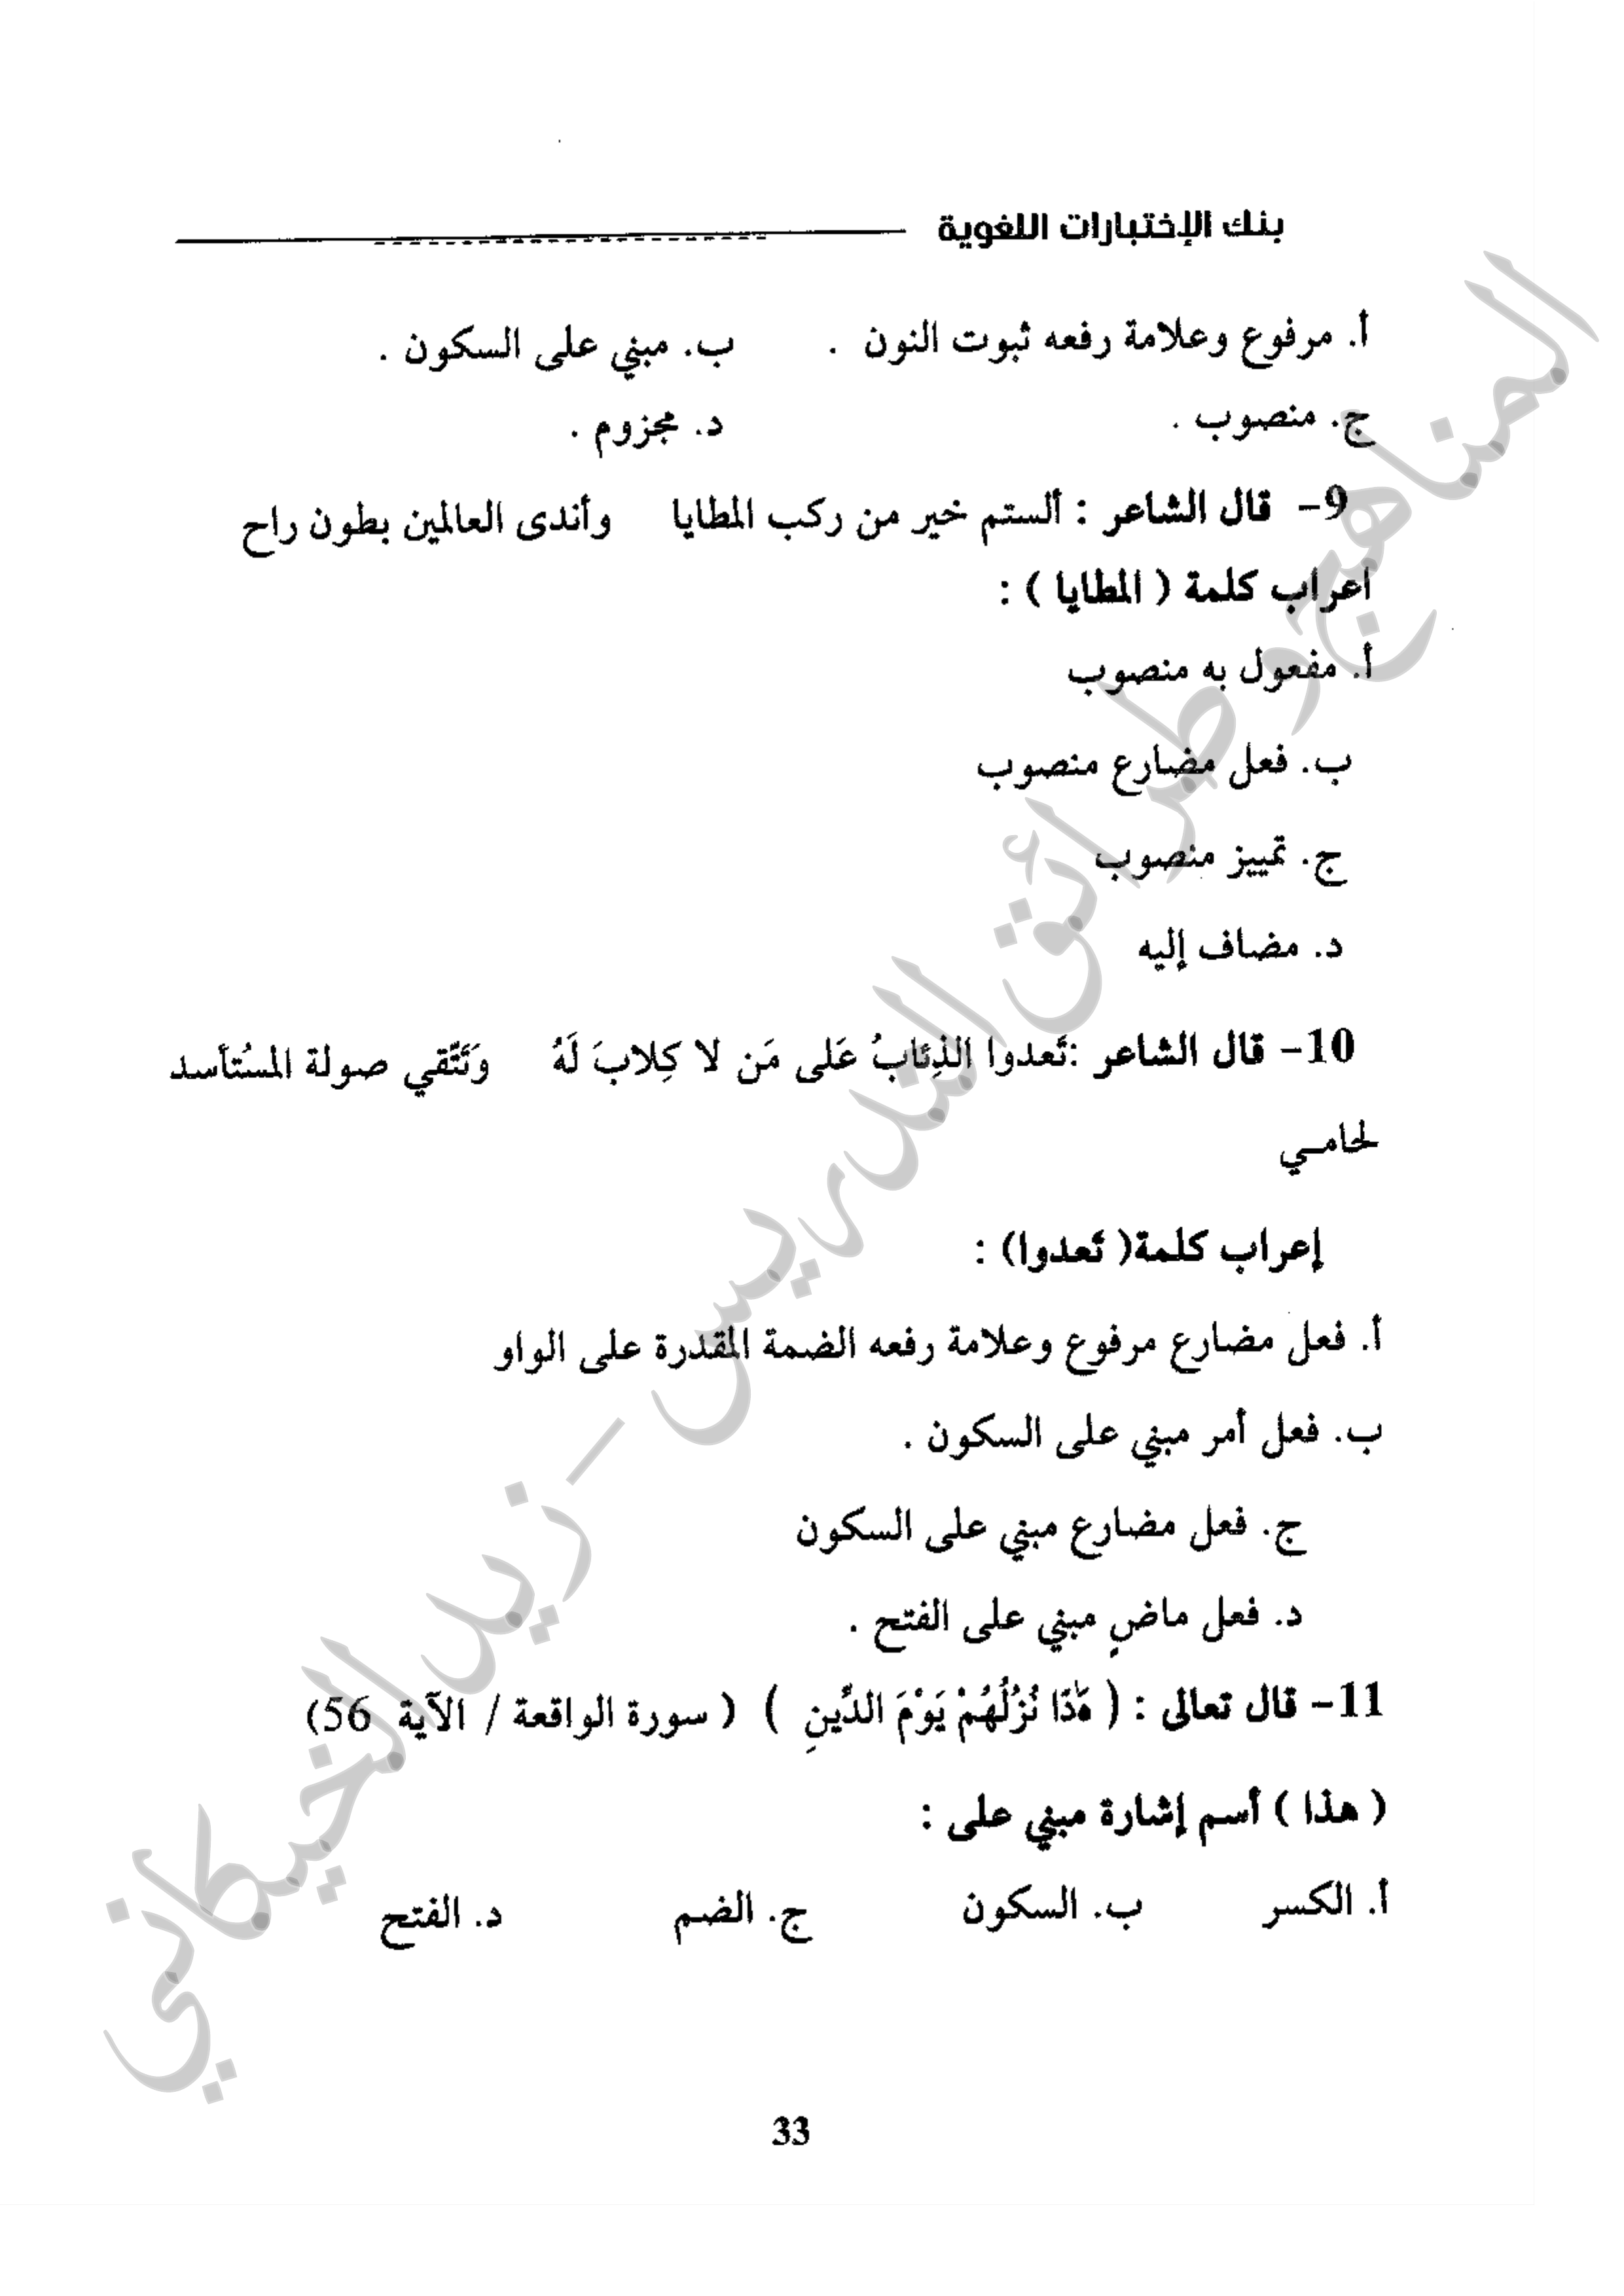 بنك الإختبارات اللغوية
أ. مرفوع وعلامة رفعه ثبوت النون . ب. مبني على السكون .
ج. منصوب . د. مجزوم .
9- قال الشاعر : ألستم خير من ركب المطايا وأندى العالمين بطون راح
اعراب كلمة ( المطايا ) :
أ. مفعول به منصوب
ب. فعل مضارع منصوب
ج. تمييز منصوب
د. مضاف إليه
10- قال الشاعر :تَعدوا الذِئابُ عَلى مَن لا كِلابَ لَهُ وَتَتَّقي صولة المسُتأسد
لحامـي
إعراب كلمة( تَعدوا) :
أ. فعل مضارع مرفوع وعلامة رفعه الضمة المقدرة على الواو
ب. فعل أمر مبني على السكون .
ج. فعل مضارع مبني على السكون
د. فعل ماضٍ مبني على الفتح .
11- قال تعالى : ( هَٰذَا نُزُلُهُمْ يَوْمَ الدِّينِ ) ( سورة الواقعة / الآية 56)
( هذا ) أسم إشارة مبني على :
أ. الكسر ب. السكون ج. الضم د. الفتح
33
المناهج وطرائق التدريس - زيد الخيكاني